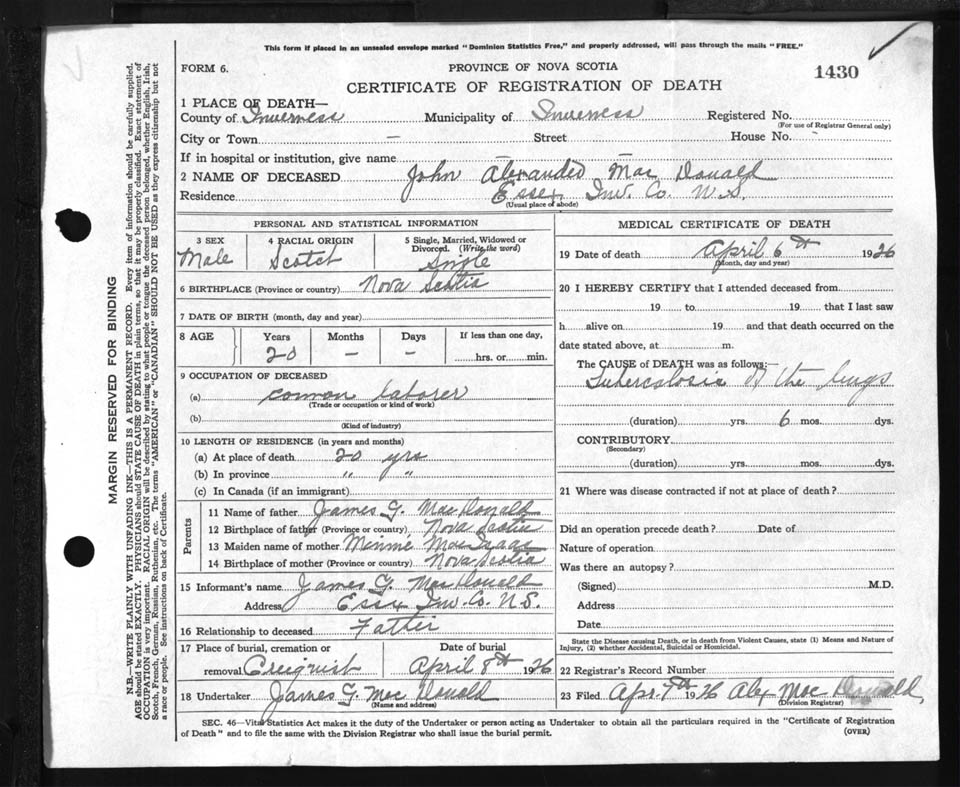 This form if placed in an unsealed envelope marked "Dominion Statistics Free," and properly addressed, will pass through the mails "FREE."
FORM 6.
PROVINCE OF NOVA SCOTIA
1430
CERTIFICATE OF REGISTRATION OF DEATH
1 PLACE OF DEATH—
County of Inverness Municipality of Inverness Registered No.
(For use of Registrar General only)
City or Town — Street House No. -
If in hospital or institution, give name
2 NAME OF DECEASED John Alexander Mac Donald
Residence Essex Inv. Co. N.S.
(Usual place of abode)
PERSONAL AND STATISTICAL INFORMATION
3 SEX
Male
4 RACIAL ORIGIN
Scotch
5 Single, Married, Widowed or Divorced. (Write the word)
Single
6 BIRTHPLACE (Province or country) Nova Scotia
7 DATE OF BIRTH (month, day and year)
8 AGE
Years
20
Months
—
Days
—
If less than one day,
hrs. or min.
9 OCCUPATION OF DECEASED
(a) comon laborer
(Trade or occupation or kind of work)
(b)
(Kind of industry)
10 LENGTH OF RESIDENCE (in years and months)
(a) At place of death 20 yrs
(b) In province " "
(c) In Canada (if an immigrant)
Parents
11 Name of father James G. MacDonald
12 Birthplace of father (Province or country) Nova Scotia
13 Maiden name of mother Minnie MacIsaac
14 Birthplace of mother (Province or country) Nova Scotia
15 Informant's name James G. MacDonald
Address Essex Inv. Co. N.S.
16 Relationship to deceased Fatter
17 Place of burial, cremation or
removal Creignish
Date of burial
April 8th 1926
18 Undertaker James G. Mac Donald
(Name and address)
MEDICAL CERTIFICATE OF DEATH
19 Date of death April 6th 1926
(Month, day and year)
20 I HEREBY CERTIFY that I attended deceased from
19 to 19 that I last saw
h alive on 19 and that death occurred on
date stated above, at m.
The CAUSE of DEATH was as follows:—
Tubercolosis of the lungs
(duration) yrs. 6 mos. dys.
CONTRIBUTORY
(Secondary)
(duration) yrs. mos. dys.
21 Where was disease contracted if not at place of death?
Did an operation precede death? Date of
Nature of operation
Was there an autopsy?
(Signed) M.D.
Address
Date
State the Disease causing Death, or in death from Violent Causes, state (1) Means and Nature of
Injury, (2) whether Accidental, Suicidal or Homicidal.
22 Registrar's Record Number
23 Filed Apr. 7th 1926 Alex Mac Donald,
(Division Registrar)
SEC. 46—Vital Statistics Act makes it the duty of the Undertaker or person acting as Undertaker to obtain all the particulars required in the "Certificate of Registration
of Death" and to file the same with the Division Registrar who shall issue the burial permit.
(OVER)
MARGIN RESERVED FOR BINDING
N.B.—WRITE PLAINLY WITH UNFADING INK—THIS IS A PERMANENT RECORD. Every item of information should be carefully supplied.
AGE should be stated EXACTLY. PHYSICIANS should STATE CAUSE OF DEATH in plain terms, so that it may be properly classified. Exact statement of
OCCUPATION is very important. RACIAL ORIGIN will be described by stating to what people or tongue the deceased person belonged, whether English, Irish,
Scotch, French, German, Russian, Ruthenian, etc. The terms "AMERICAN" or "CANADIAN" SHOULD NOT BE USED as they express citizenship but not
a race or people. See instructions on back of Certificate.